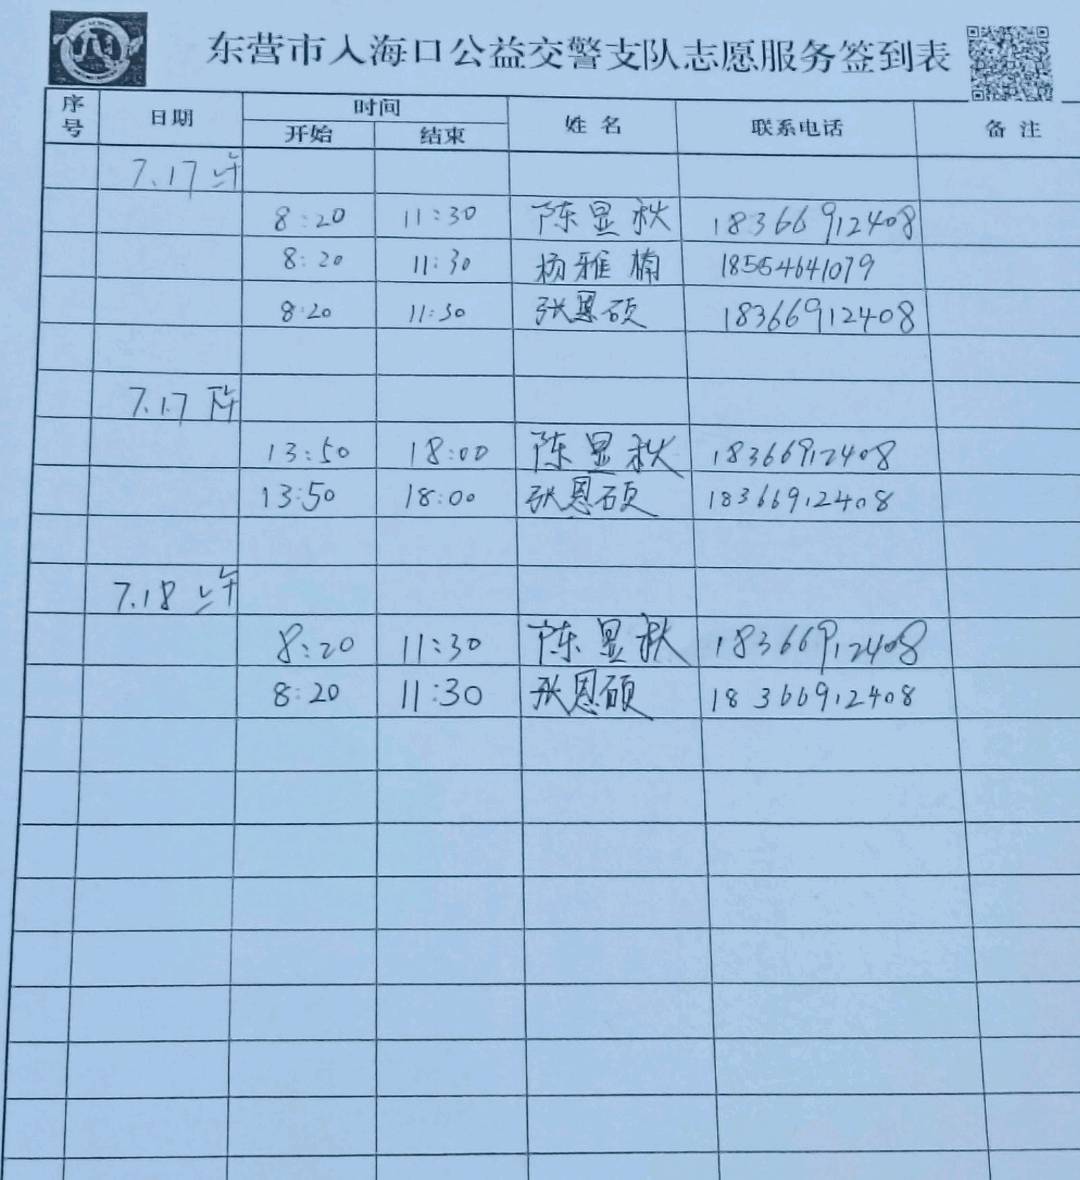 东营市入海口公益交警支队志愿服务签到表
序号 日期 时间 姓名 联系电话 备注
开始 结束
7.17 上午
8:20 11:30 陈显秋 18366912408
8:20 11:30 杨雅楠 18554641079
8:20 11:30 张恩硕 18366912408
7.17 下午
13:50 18:00 陈显秋 18366912408
13:50 18:00 张恩硕 18366912408
7.18 上午
8:20 11:30 陈显秋 18366912408
8:20 11:30 张恩硕 18366912408